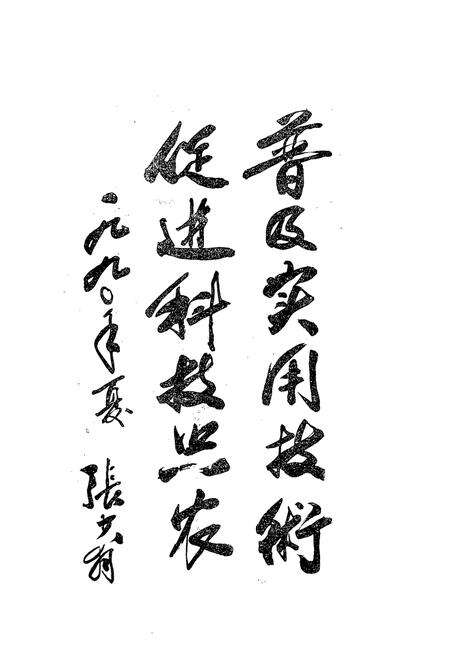 普及实用技術
促進科技兴农
一九九〇年夏 張